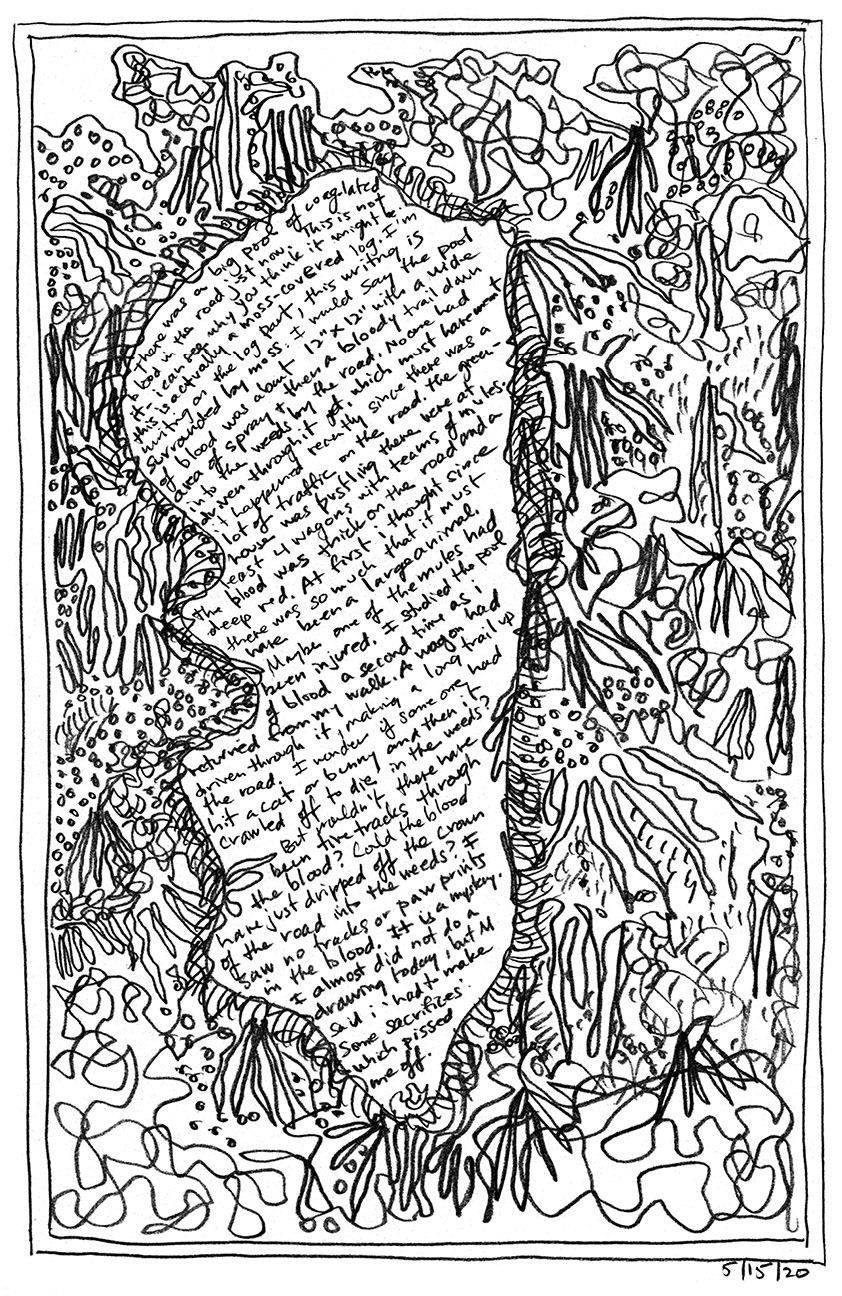 There was a big pool of coagulated
blood in the road just now. This is not
it - i can see why you think it might be
this is actually a moss-covered log. I'm
writing on the log part, this writing is
surrounded by moss. I would say the pool
of blood was about 12" x 12" with a wide
area of spray & then a bloody trail down
into the weeds by the road. No one had
driven through it yet which must have meant
it happened recently since there was a
lot of traffic on the road. The green-
house was bustling there were at
least 4 wagons with teams of mules.
The blood was thick on the road and a
deep red. At first i thought since
there was so much that it must
have been a large animal.
Maybe one of the mules had
been injured. I studied the pool
of blood a second time as i
returned from my walk. A wagon had
driven through it, making a long trail up
the road. I wonder if some one had
hit a cat or bunny and then it
crawled off to die in the weeds?
But wouldn't there have
been tire tracks through
the blood? Could the blood
have just dripped off the crown
of the road into the weeds? I
saw no tracks or paw prints
in the blood. It is a mystery.
I almost did not do a
drawing today, but M
said i had to make
some sacrifices
which pissed
me off.
5/15/20